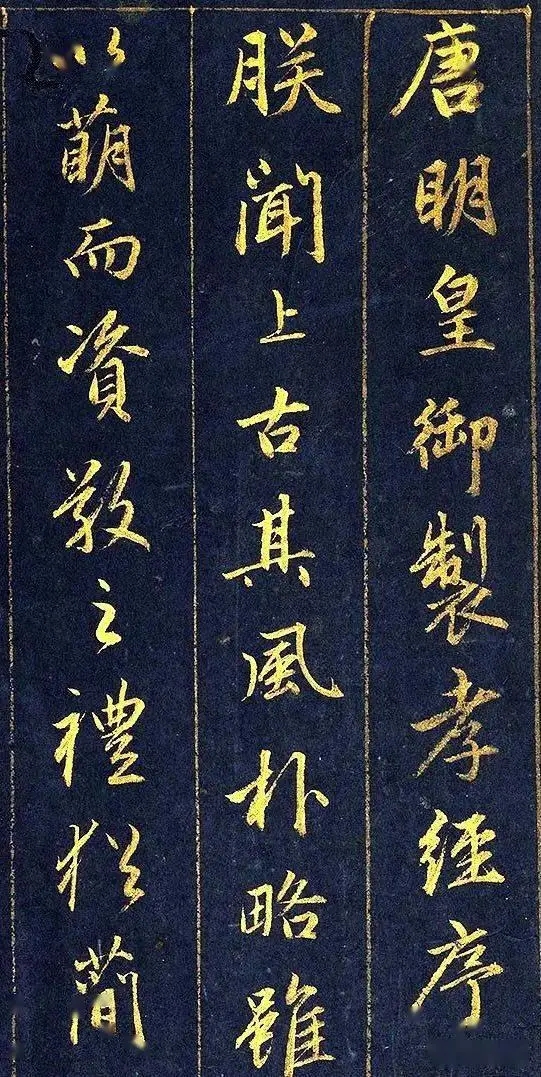 唐明皇御製孝經序
朕聞上古其風朴略雖
以萌而資敬之禮猶簡